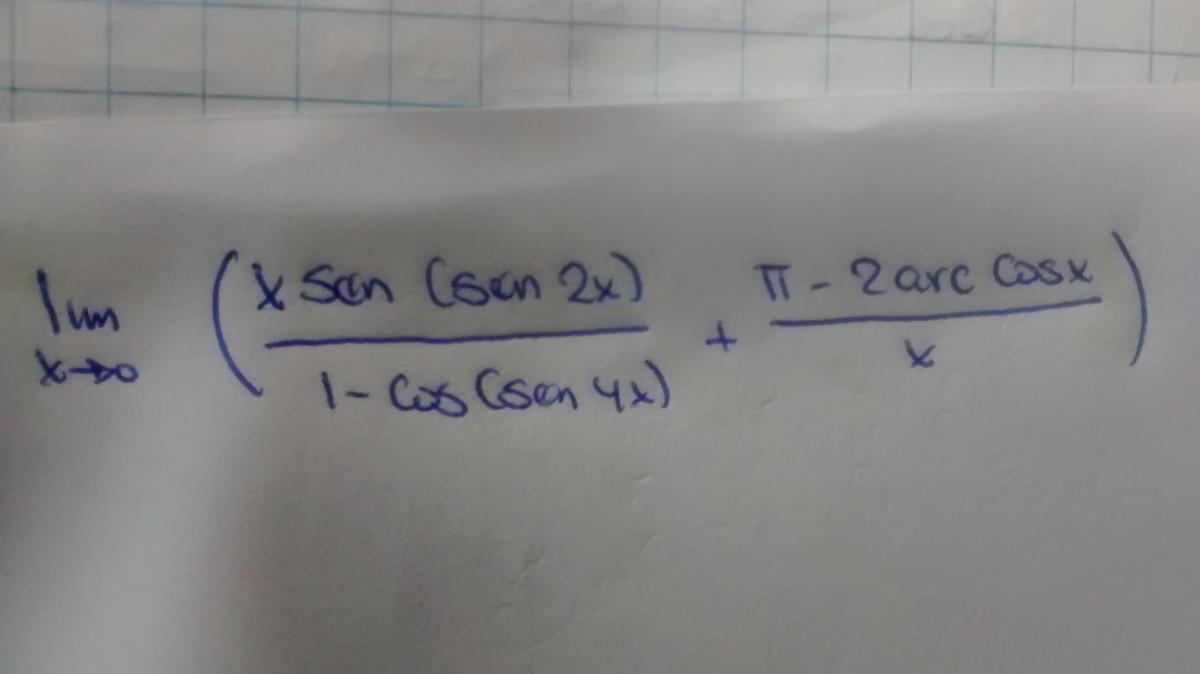 lim x→0 ( x sen (sen 2x) / 1 - cos (sen 4x) + π - 2 arc cos x / x )